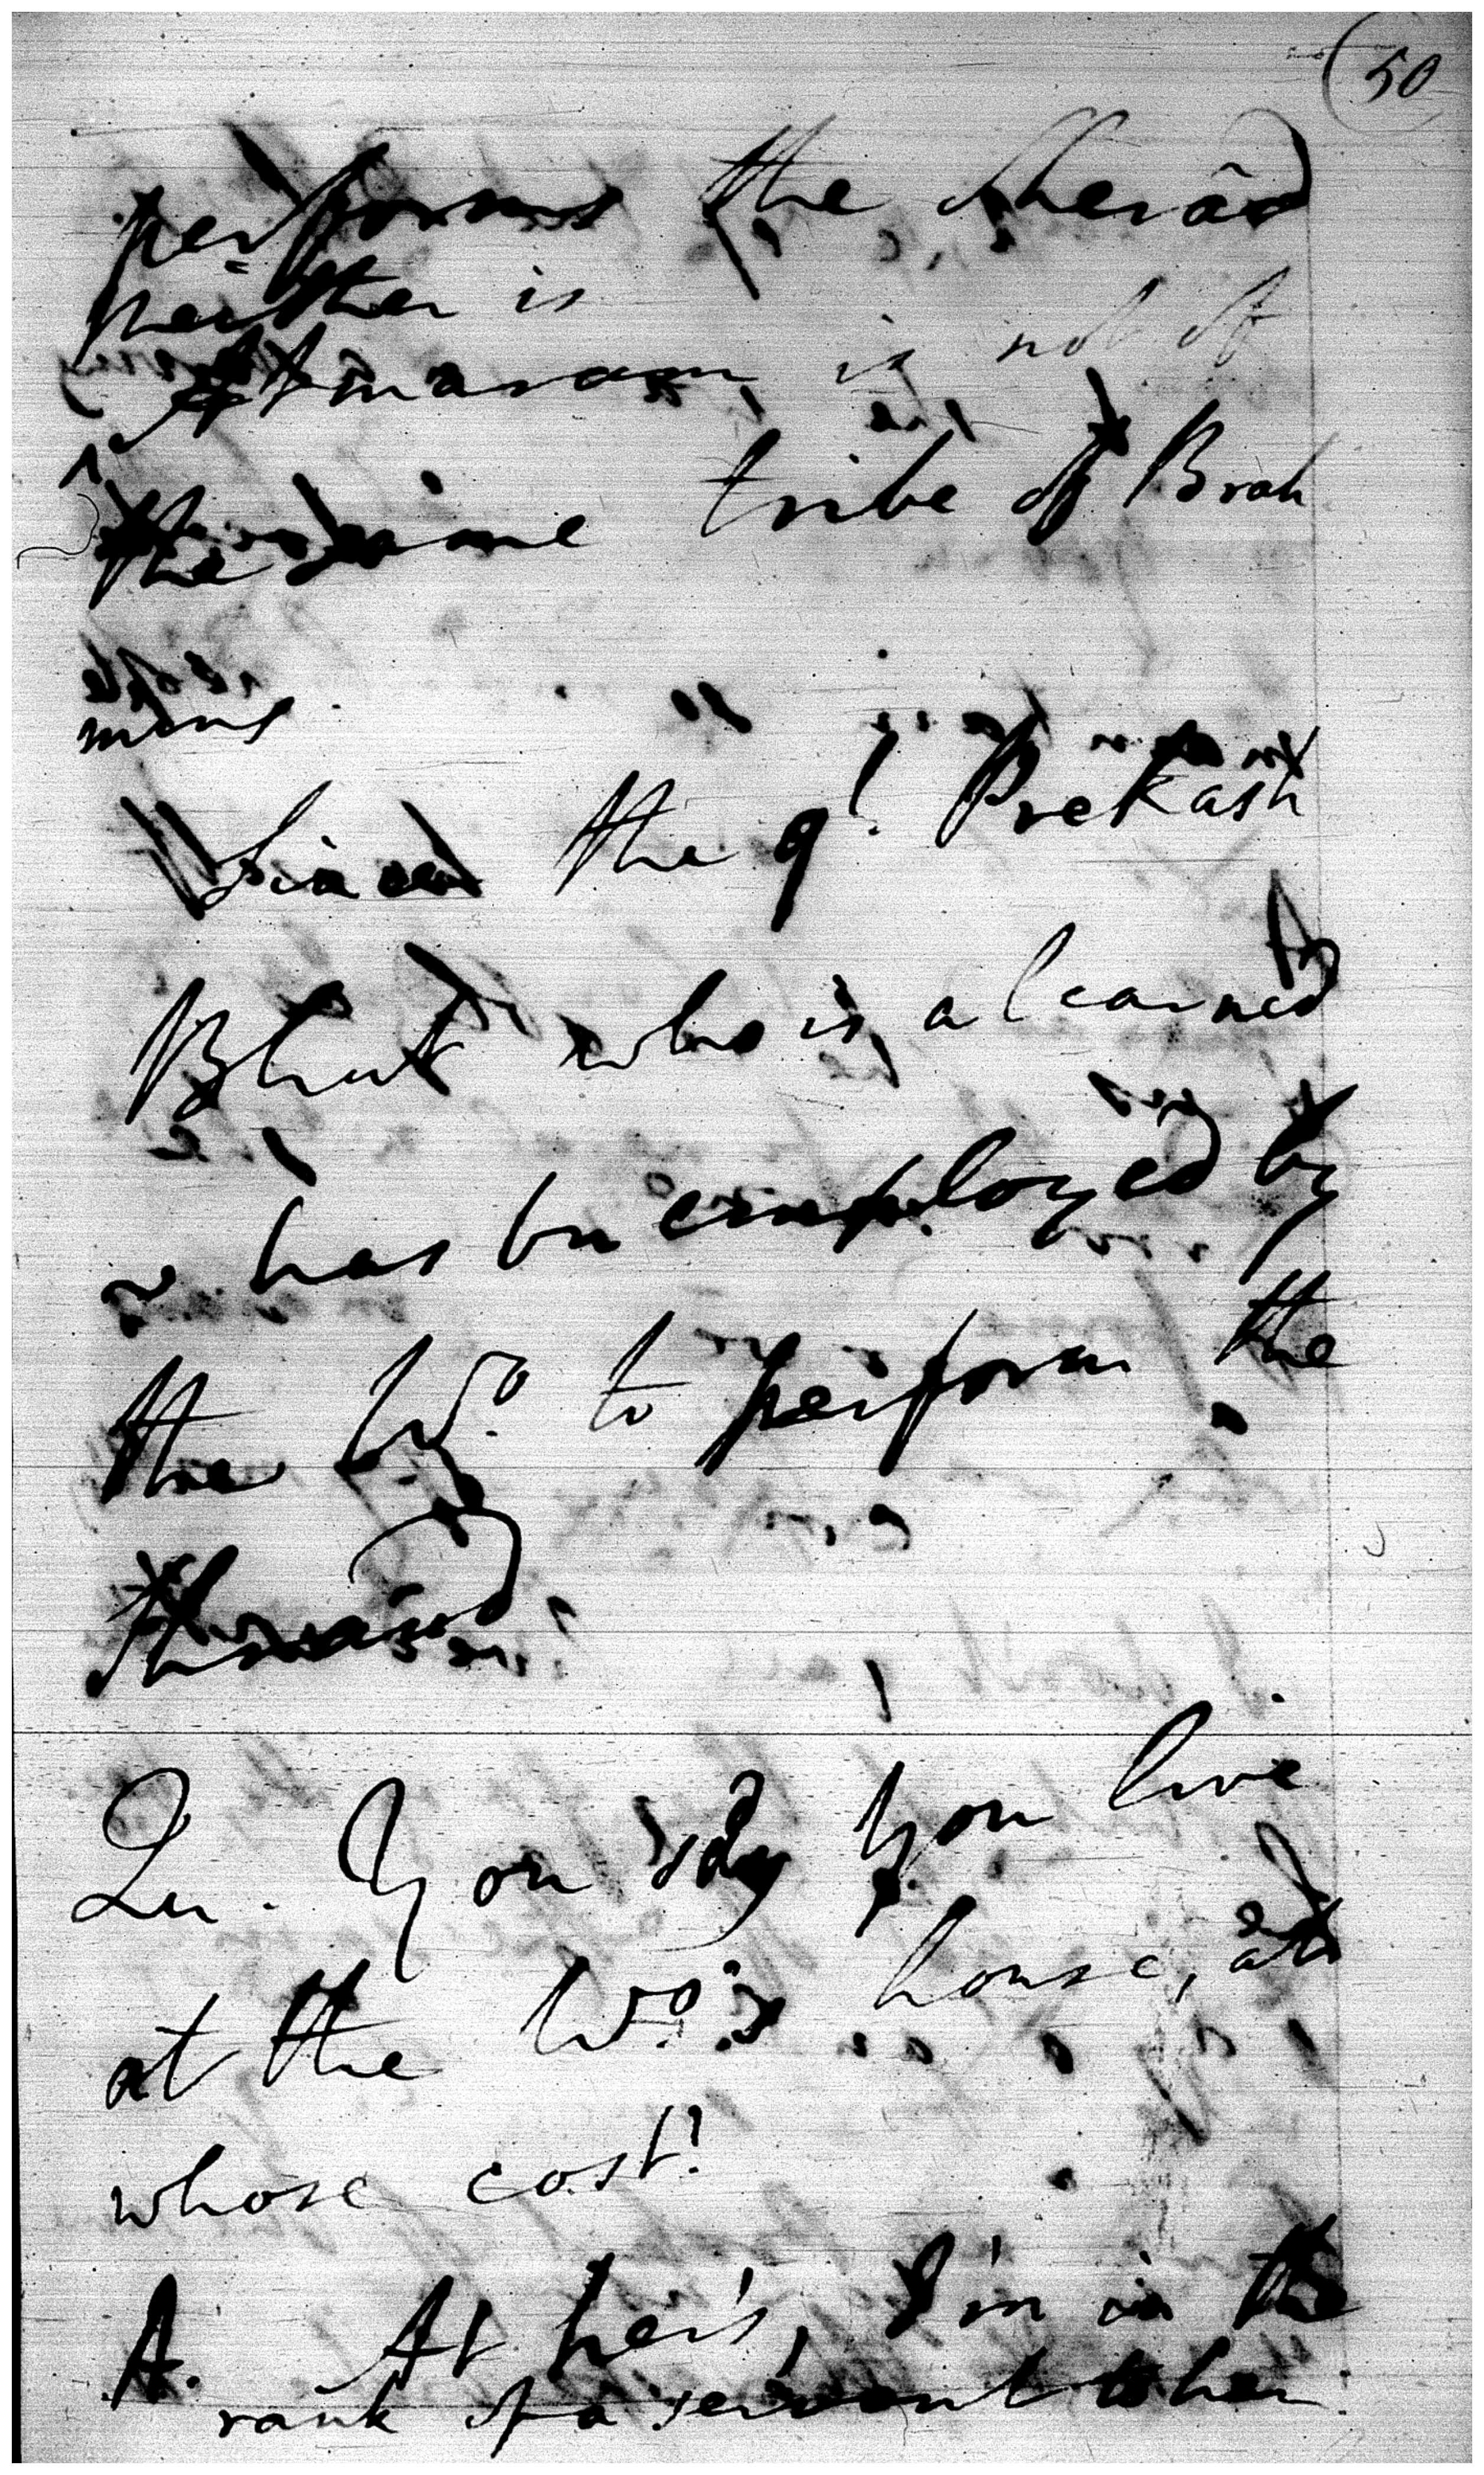 50
performs the Sherâd
neither is
Atmaram is not of
the same tribe of Brah
mins
Since the 9th. Prekash
Bhut who is a learned
has bn employed by
the Wo. to perform the
Sherâd
Qu. You say you live
at the Wo.'s house, at
whose cost?
A. At her's, I'm in the
rank of a servant to her